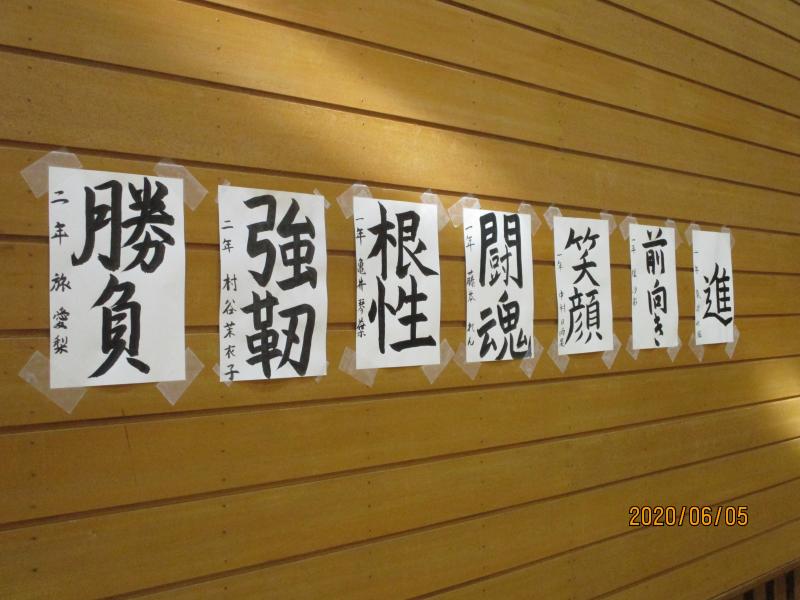 勝負
二年 旅 愛梨
強靭
二年 村谷茉衣子
根性
一年 亀井琴葉
闘魂
一年 藤本 れん
笑顔
一年 中村
前向き
一年
進
一年
2020/06/05